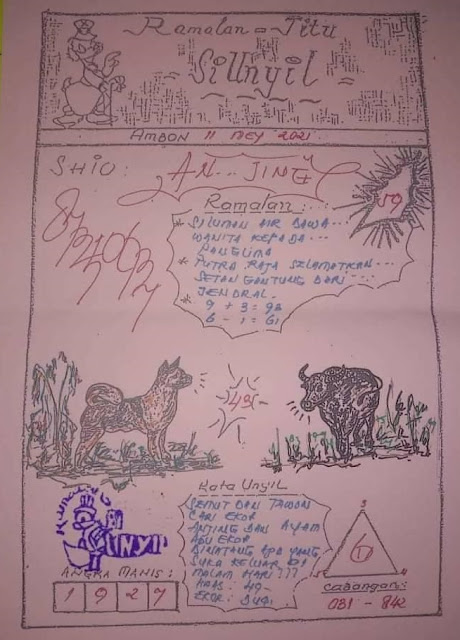 Ramalan = Jitu
Si Unyil
AMBON 11 MEY 2021
SHIO: AN.. JING
59
Ramalan:
* SILUMAN AIR BAWA...
WANITA KEPADA...
PANGLIMA
* PUTRA RAJA SELAMATKAN...
SETAN GANTUNG DARI
JENDRAL.
* 9 + 3 = 93
6 - 1 = 61
Kata Unyil
SEMUT DAN TAWON
CARI EKOR
ANJING DAN AYAM
ADU EKOR
BINATANG APA YANG
SUKA KELUAR DI
MALAM HARI???
UNYIL
ANGKA MANIS:
1 9 2 7
CABANGAN:
031 - 842